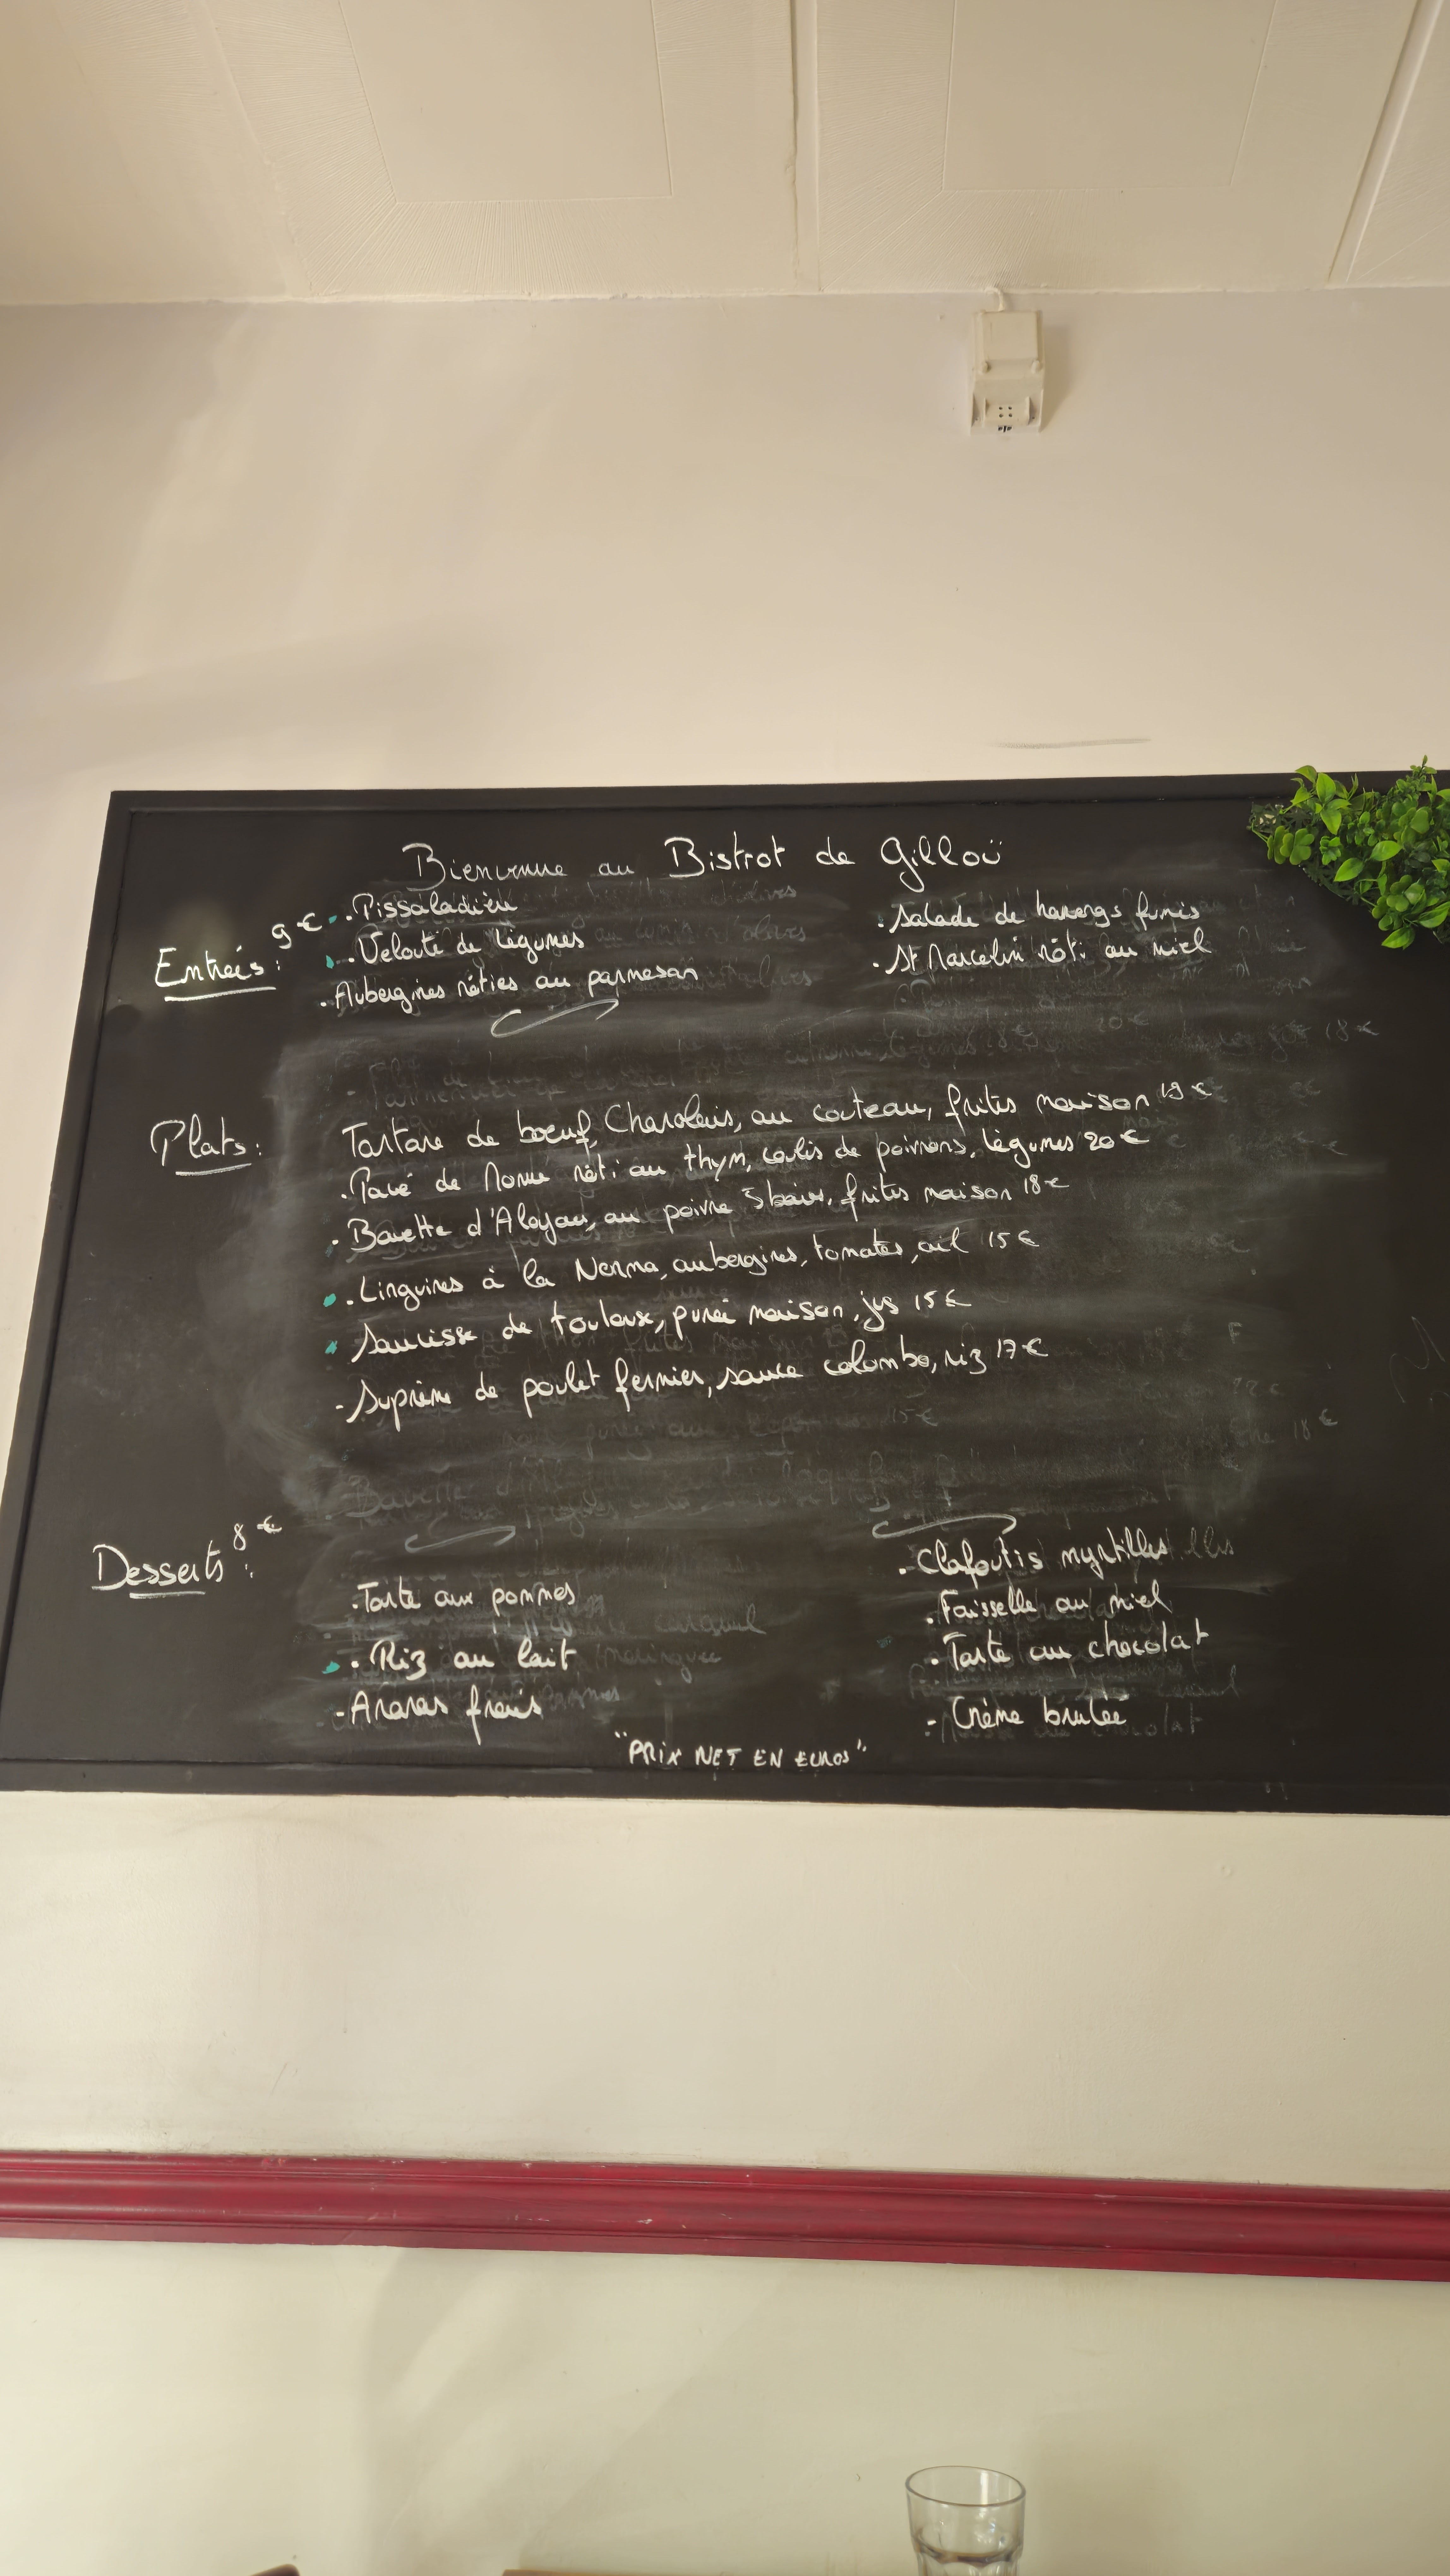 Bienvenue au Bistrot de Gilloü
Entrées : 9 €
. Pissaladière
. Velouté de légumes
. Aubergines rôties au parmesan
. Salade de harengs fumés
. St Marcelin rôti au miel
Plats :
Tartare de boeuf, Charolais, au couteau, frites maison 19 €
. Pavé de rôti au thym, coulis de poivrons, légumes 20 €
. Bavette d'Aloyau, au poivre 5 baies, frites maison 18 €
. Linguines à la Norma, aubergines, tomates, ail 15 €
Saucisse de toulouse, purée maison, jus 15 €
- Suprême de poulet fermier, sauce colombo, riz 17 €
Desserts : 8 €
. Tarte aux pommes
. Riz au lait
- Ananas frais
. Clafoutis myrtilles
. Faisselle au miel
. Tarte au chocolat
- Crème brulée
"PRIX NET EN EUROS"